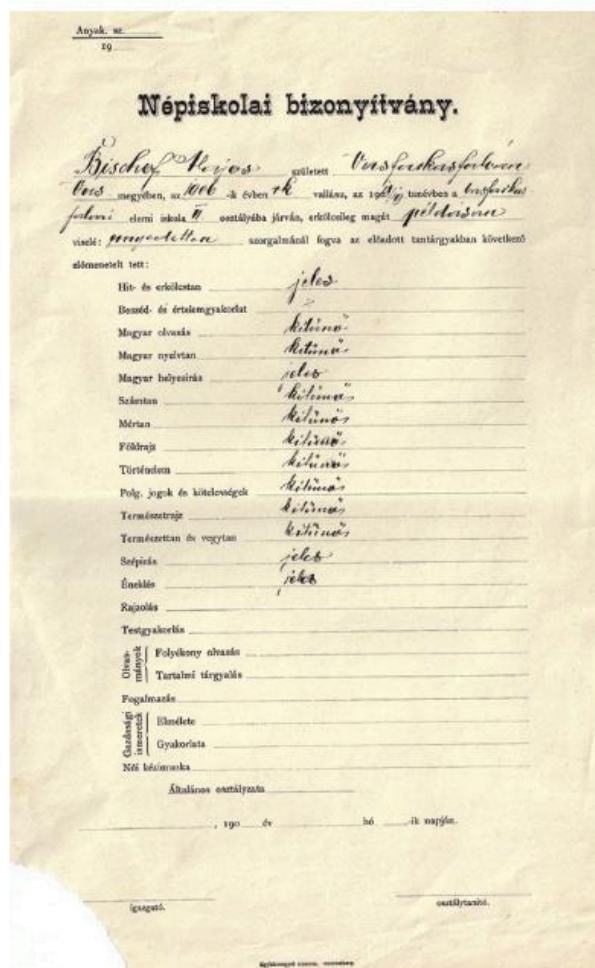 Anyak. sz.
19
Népiskolai bizonyítvány.
Bischof Alajos született Vasfarkasfalván
Vas megyében, az -ik évben rk vallásu, az 19 tanévben a vasfarkas
falvi elemi iskola VI osztályába járván, erkölcsileg magát példásan
viselé: szorgalmánál fogva az előadott tantárgyakban következő
előmenetelt tett:
Hit- és erkölcstan jeles
Beszéd- és értelemgyakorlat
Magyar olvasás kitünő
Magyar nyelvtan kitünő
Magyar helyesirás jeles
Számtan kitünő
Mértan kitünő
Földrajz kitünő
Történelem kitünő
Polg. jogok és kötelességek kitünő
Természetrajz kitünő
Természettan és vegytan kitünő
Szépirás jeles
Éneklés jeles
Rajzolás
Testgyakorlás
Olvasmányok
Folyékony olvasás
Tartalmi tárgyalás
Fogalmazás
Gazdasági ismeretek
Elmélete
Gyakorlata
Női kézimunka
Általános osztályzata
, 190 év hó -ik napján.
igazgató. osztálytanító.